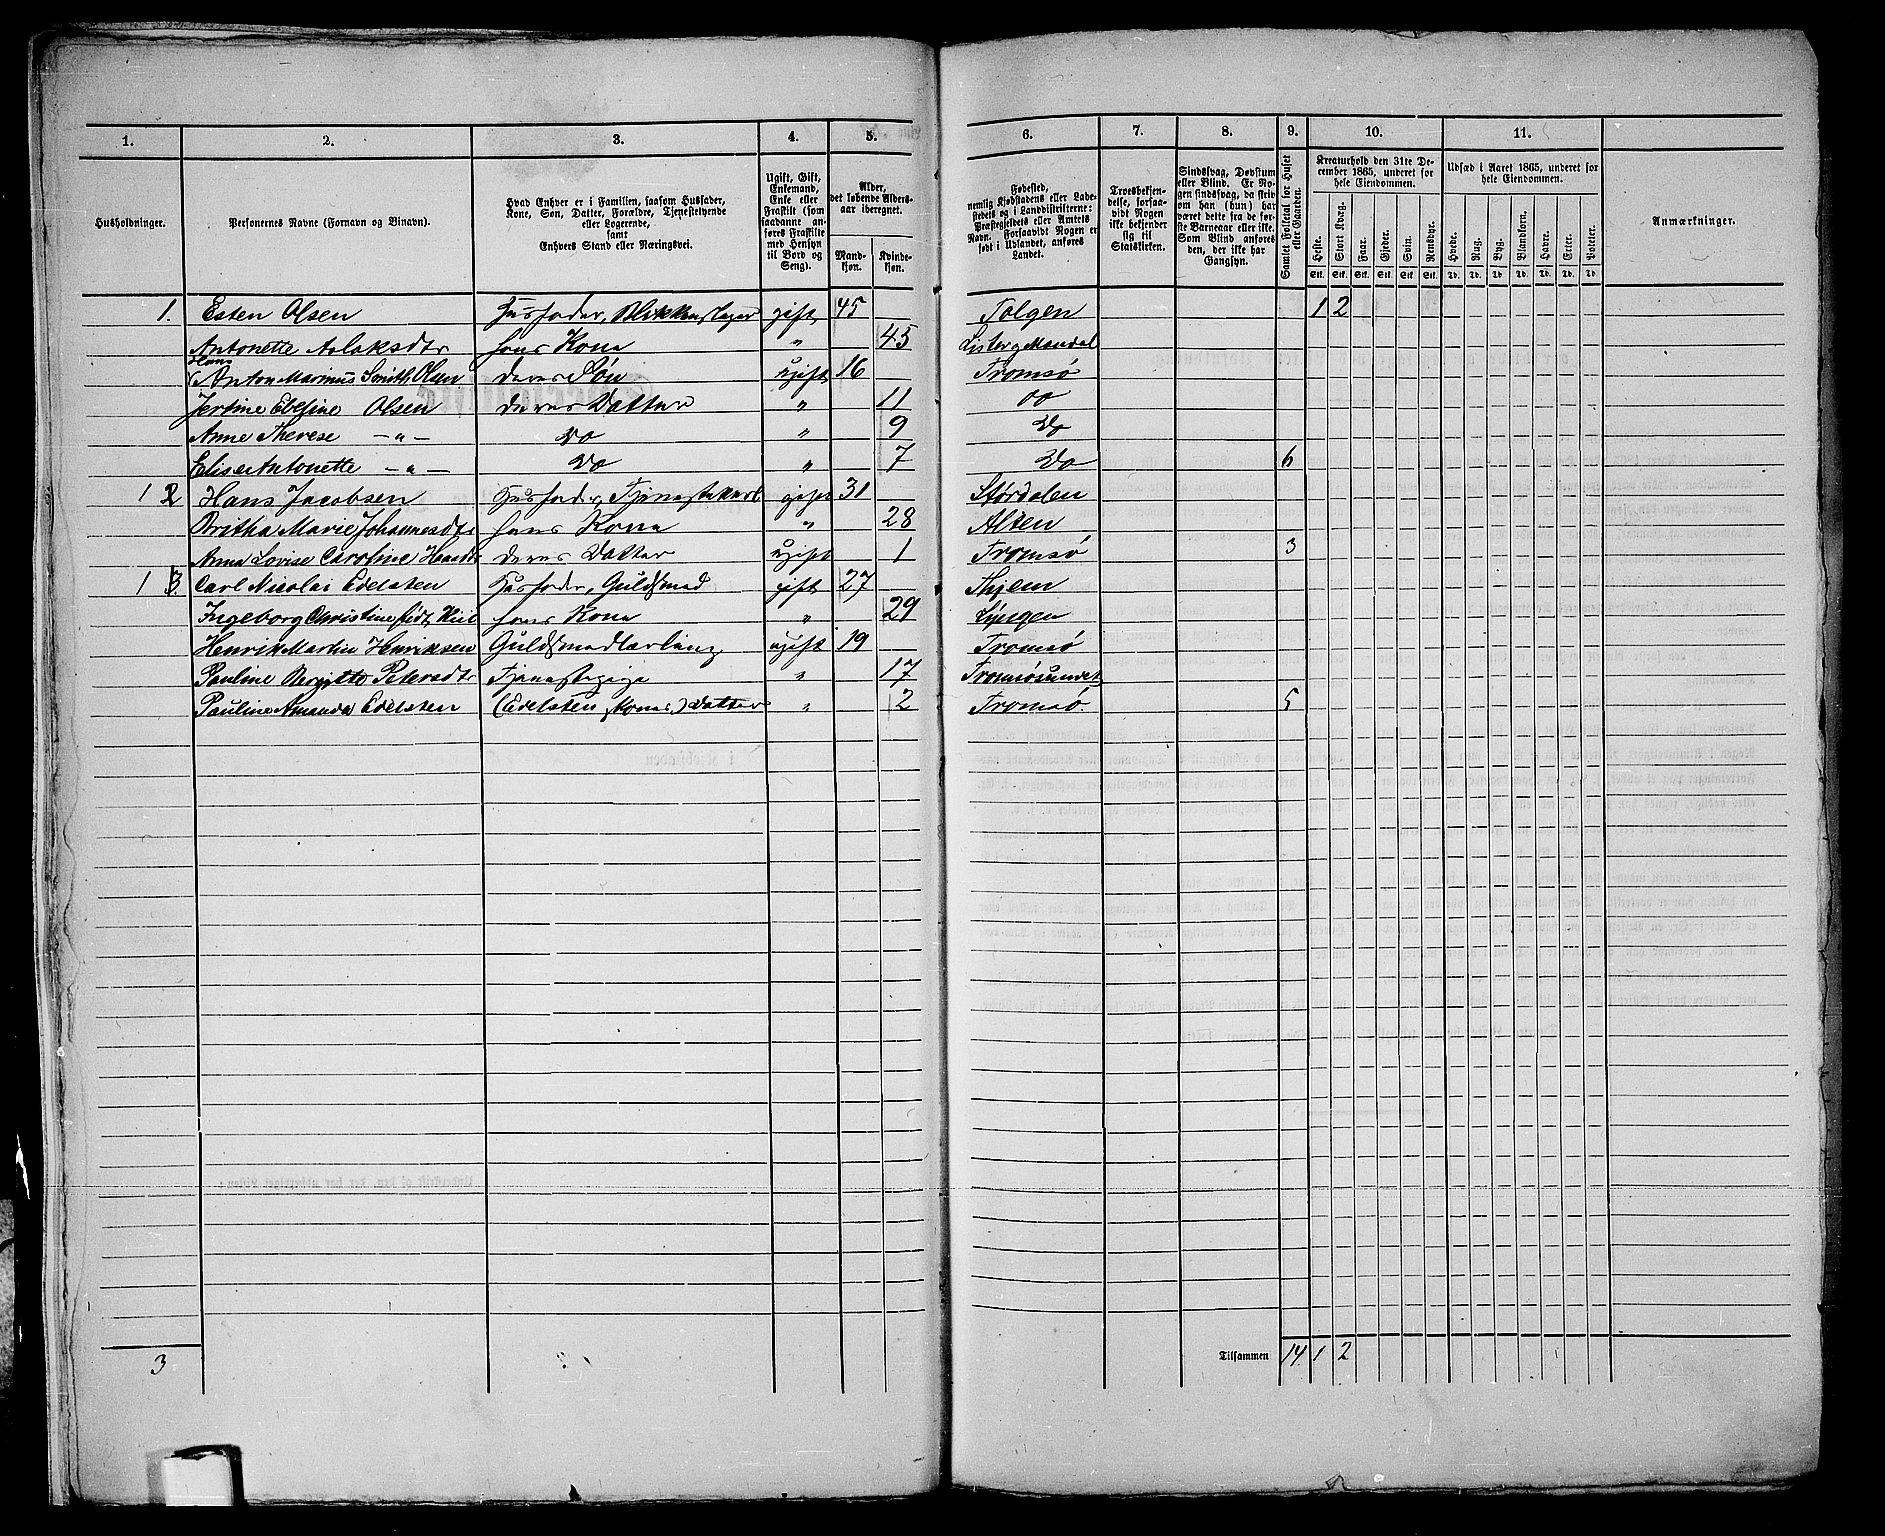 1. 2. 3. 4. 5. 6. 7. 8. 9. 10. 11.
Husholdninger.
Personernes Navne (Fornavn og Tilnavn).
Hvad Enhver er i Familien, saasom Husfader, Kone, Søn, Datter, Forældre, Tjenestetyende eller Logerende, samt Enhvers Stand eller Næringsvei.
Ugift, Gift, Enkemand, Enke eller Fraskilt (som saadanne anføres Fraskilte med Hensyn til Bord og Seng).
Alder, det løbende Alders-aar iberegnet.
Mand-kjøn. Kvinde-kjøn.
Fødested, nemlig Kjøbstadens eller Ladestedets og i Landdistrikterne: Præstegjeldets eller Amtets Navn. Forsaavidt Nogen er født i Udlandet, anføres Landet.
Troesbekjendelse, forsaavidt Nogen ikke bekjender sig til Statskirken.
Sindssvag, Døvstum eller Blind. Er Nogen sindssvag, da skrives om han (hun) har været dette fra de første Barneaar eller ikke. Som Blind anføres den, der ikke har Gangsyn.
Samlet Folketal for Huset eller Gaarden.
Kreaturhold den 31te December 1865, underet for hele Eiendommen.
Heste. Stort Kvæg. Faar. Gjeder. Svin. Rensdyr.
Stk. Stk. Stk. Stk. Stk. Stk.
Udsæd i Aaret 1865, underet for hele Eiendommen.
Hvede. Rug. Byg. Blandkorn. Havre. Erter. Poteter.
Td. Td. Td. Td. Td. Td. Td.
Anmærkninger.
1. Esten Olsen Husfader, Blikkenslager gift 45 Tolgen 1 2
Antonette Aslaksdtr hans Kone " 45 Lister og Mandal
Hans
Anton Marinus Smith Olsen deres Søn ugift 16 Tromsø
Jertine Ebesine Olsen deres Datter " 11 do
Anne Therese -"- Do " 9 Do
Elise Antonette -"- Do " 7 Do 6
1 2 Hans Jacobsen Husfader, Tjenestekarl gift 31 Størdalen
Britha Marie Johannesdtr hans Kone " 28 Alten
Anna Lovise Caroline Hansdtr deres Datter ugift 1 Tromsø 3
1 3. Carl Nicolai Edelsten Husfader, Guldsmed gift 27 Thjem
Ingeborg Christine født Kiil hans Kone " 29 Lyngen
Henrik Martin Henriksen Guldsmedlærling ugift 19 Tromsø
Pauline Bergitte Petersdtr Tjenestepige " 17 Tromsøsundet
Pauline Amanda Edelsten (Edelsten, Kones) Datter " 2 Tromsø. 5
3 Tilsammen 14 1 2